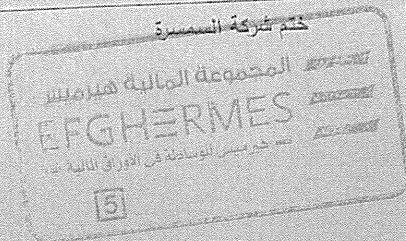 ختم شركة السمسرة
المجموعة المالية هيرميس
EFGHERMES
هيرميس الوساطة فى الأوراق المالية
5